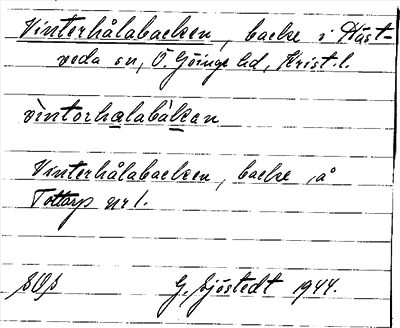 Vinterhålabacken, backe i Häst-
veda sn, Ö. Göinge hd, Krist. l.
vìntorhalabàkan
Vinterhålabacken, backe å
Tottarp nr 1.
G. Sjöstedt 1944.